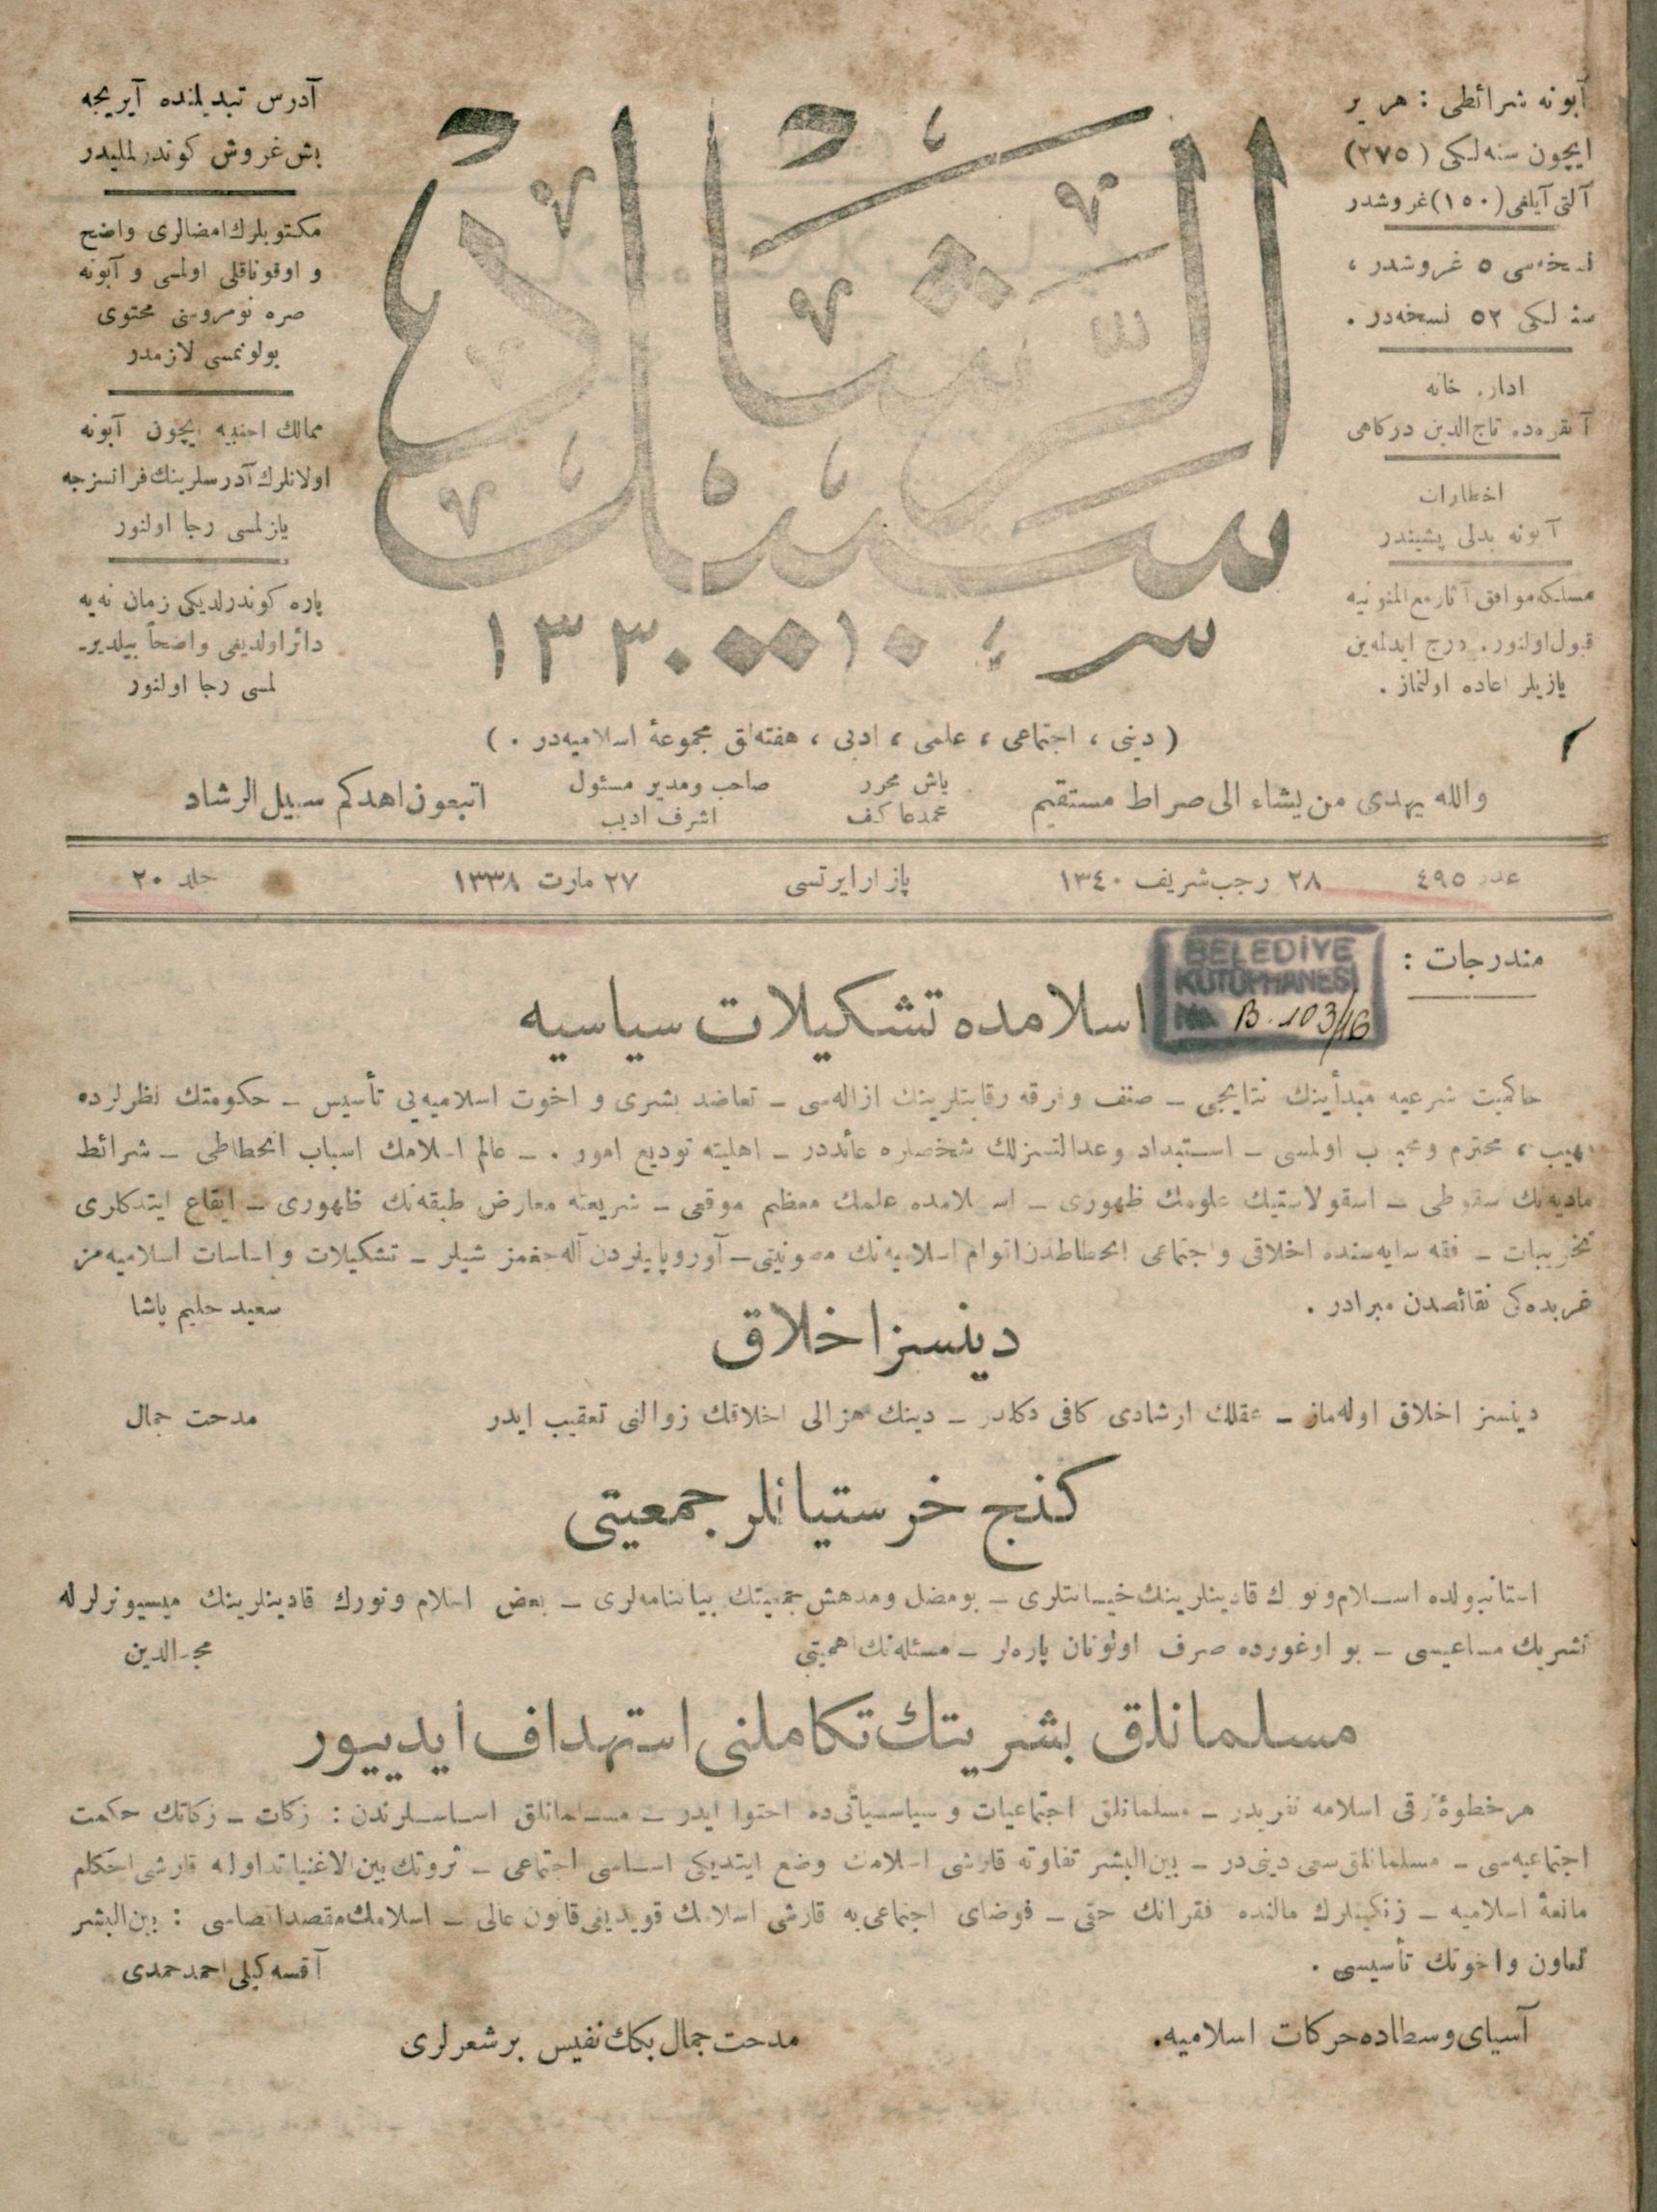 آبونه شرائطی : هر یر
ایچون سنه‌لکی (٢٧٥)
آلتی آیلغی (١٥٠) غروشدر
نسخه‌سی ٥ غروشدر ،
سنه لکی ٥٢ نسخه‌در .
اداره خانه
آنقره‌ده تاج‌الدین درکاهی
اخطارات
آبونه بدلی پشیندر
مسلکه موافق آثار مع‌الممنونیه
قبول اولنور. درج ایدلمه‌ین
یازیلر اعاده اولنماز .
سبیل الرشاد
سر ١٣٣٠
آدرس تبدیلنده آیریجه
بش غروش کوندرلملیدر
مکتوبلرك امضالری واضح
و اوقوناقلی اولمسی و آبونه
صره نومروسنی محتوی
بولونمسی لازمدر
ممالك اجنبیه ایچون آبونه
اولانلرك آدرسلرینك فرانسزجه
یازلمسی رجا اولنور
پاره کوندرلدیکی زمان نه‌یه
دائر اولدیغی واضحاً بیلدیر-
لمسی رجا اولنور
( دینی ، اجتماعی ، علمی ، ادبی ، هفته‌لق مجموعۀ اسلامیه‌در . )
والله یهدی من یشاء الی صراط مستقیم
باش محرر
محمد عاکف
صاحب ومدیر مسئول
اشرف ادیب
اتبعون اهدکم سبیل الرشاد
عدد ٤٩٥
٢٨ رجب شریف ١٣٤٠
پازار ایرتسی
٢٧ مارت ١٣٣٨
جلد ٢٠
مندرجات :
BELEDİYE
KÜTÜPHANESİ
No. B.103/16
اسلامده تشکیلات سیاسیه
حاکمیت شرعیه مبدأینك نتایجی – صنف و فرقه رقابتلرینك ازاله‌سی – تعاضد بشری و اخوت اسلامیه‌یی تأسیس – حکومتك نظرلرده
مهیب ، محترم و محبوب اولمسی – استبداد و عدالتسزلك شخصلره عائددر – اهلیته تودیع امور . – عالم اسلامك اسباب انحطاطی – شرائط
مادیه‌نك سقوطی – اسقولاستیك علومك ظهوری – اسلامده علمك معظم موقعی – شریعته معارض طبقه‌نك ظهوری – ایقاع ایتدکاری
تخریبات – فقه سایه‌سنده اخلاقی و اجتماعی انحطاطدن اقوام اسلامیه‌نك مصونیتی – آوروپالیلردن آله‌جغمز شیلر – تشکیلات و اساسات اسلامیه‌مز
غربده‌کی نقائصدن مبرادر .
سعید حلیم پاشا
دینسز اخلاق
دینسز اخلاق اوله‌ماز – عقلك ارشادی کافی دکلدر – دینك هزالی اخلاقك زوالنی تعقیب ایدر
مدحت جمال
کنج خرستیانلر جمعیتی
استانبولده اسلام و تورك قادینلرینك خیانتلری – بو مضل و مدهش جمعیتك بیاننامه‌لری – بعض اسلام و تورك قادینلرینك میسیونرلرله
تشریك مساعیسی – بو اوغورده صرف اولونان پاره‌لر – مسئله‌نك اهمیتی
مسلمانلق بشریتك تکاملنی استهداف ایدییور
هر خطوۀ ترقی اسلامه تقربدر – مسلمانلق اجتماعیات و سیاسیاتی‌ده احتوا ایدر – مسلمانلق اساسلرندن : زکات – زکاتك حکمت
اجتماعیه‌سی – مسلمانلق سعی دینی‌در – بین‌البشر تفاوته قارشی اسلامك وضع ایتدیکی اساسی اجتماعی – ثروتك بین‌الاغنیا تداوله قارشی احکام
مانعۀ اسلامیه – زنکینلرك مالنده فقرانك حقی – فوضای اجتماعی‌یه قارشی اسلامك قویدیغی قانون عالی – اسلامك مقصد اقصاسی : بین‌البشر
تعاون و اخوتك تأسیسی .
آقسه‌کیلی احمد حمدی
آسیای وسطاده حرکات اسلامیه.
مدحت جمال بکك نفیس بر شعرلری